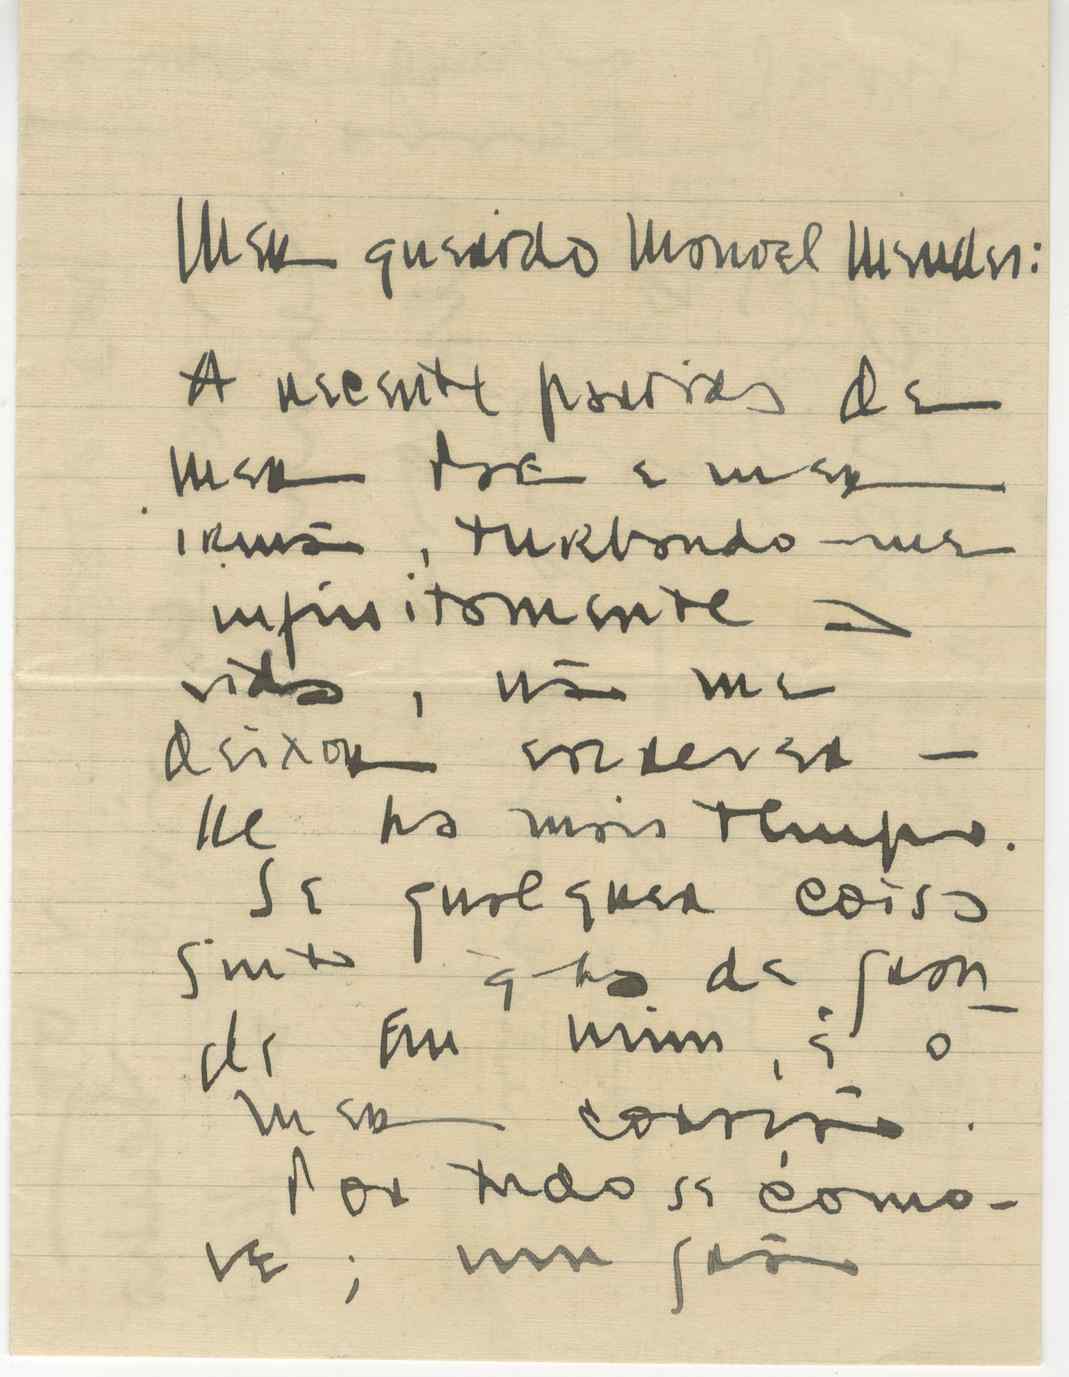 Meu querido Manoel Mendes:
A recente partida de
meu Pae e meu
irmão, turbando-me
infinitamente a
vida, não me
deixou escrever-
lhe ha mais tempo.
Se qualquer coisa
sinto q ha de gran
de em mim, é o
meu coração.
Por tudo se como-
ve; um grão